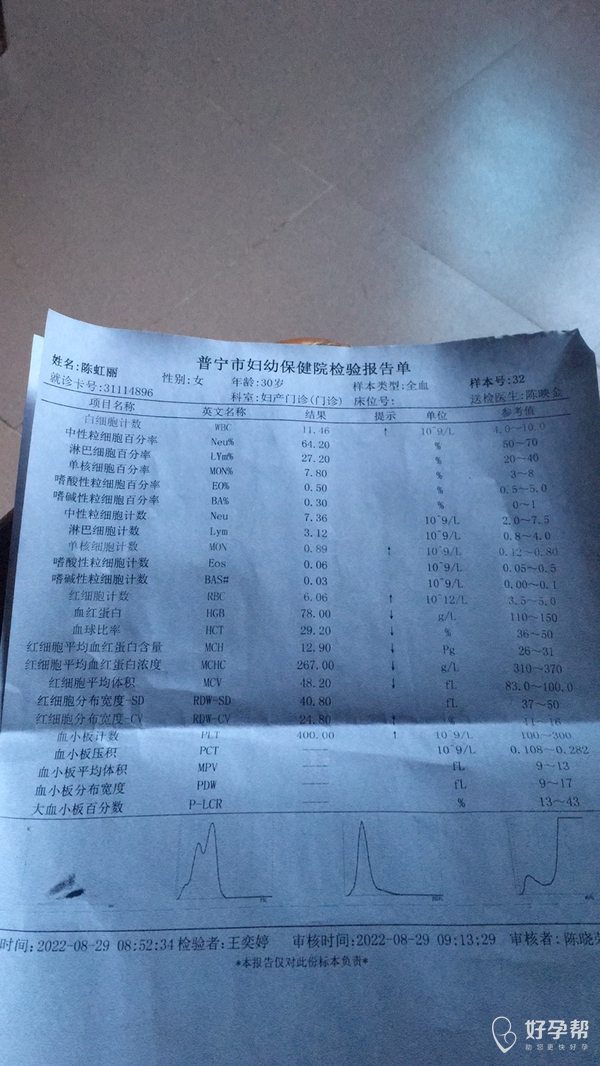 普宁市妇幼保健院检验报告单
姓名:陈虹丽 性别:女 年龄:30岁 样本类型:全血 样本号:32
就诊卡号:31114896 科室:妇产门诊(门诊) 床位号: 送检医生:陈映金
项目名称 英文名称 结果 提示 单位 参考值
白细胞计数 WBC 11.46 ↑ 10^9/L 4.0~10.0
中性粒细胞百分率 Neu% 64.20 % 50~70
淋巴细胞百分率 LYm% 27.20 % 20~40
单核细胞百分率 MON% 7.80 % 3~8
嗜酸性粒细胞百分率 EO% 0.50 % 0.5~5.0
嗜碱性粒细胞百分率 BA% 0.30 % 0~1
中性粒细胞计数 Neu 7.36 10^9/L 2.0~7.5
淋巴细胞计数 Lym 3.12 10^9/L 0.8~4.0
单核细胞计数 MON 0.89 ↑ 10^9/L 0.12~0.80
嗜酸性粒细胞计数 Eos 0.06 10^9/L 0.05~0.5
嗜碱性粒细胞计数 BAS# 0.03 10^9/L 0.00~0.1
红细胞计数 RBC 6.06 ↑ 10^12/L 3.5~5.0
血红蛋白 HGB 78.00 ↓ g/L 110~150
血球比率 HCT 29.20 ↓ % 36~50
红细胞平均血红蛋白含量 MCH 12.90 ↓ Pg 26~31
红细胞平均血红蛋白浓度 MCHC 267.00 ↓ g/L 310~370
红细胞平均体积 MCV 48.20 ↓ fL 83.0~100.0
红细胞分布宽度-SD RDW-SD 40.80 fL 37~50
红细胞分布宽度-CV RDW-CV 24.80 ↑ % 11~16
血小板计数 PLT 400.00 ↑ 10^9/L 100~300
血小板压积 PCT ---- 10^9/L 0.108~0.282
血小板平均体积 MPV ---- fL 9~13
血小板分布宽度 PDW ---- fL 9~17
大血小板百分数 P-LCR ---- % 13~43
时间:2022-08-29 08:52:34 检验者:王奕婷 审核时间:2022-08-29 09:13:29 审核者:陈晓
*本报告仅对此份标本负责*
好孕帮
助您更快好孕